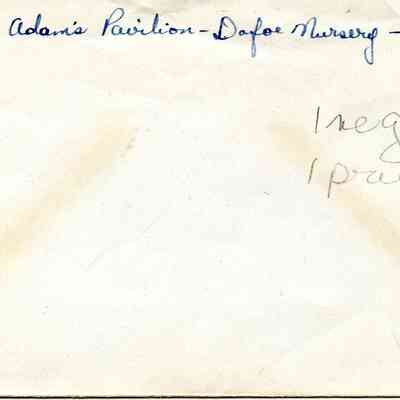 Adam's Pavilion - Dafoe Nursery -
1 neg
1 pri